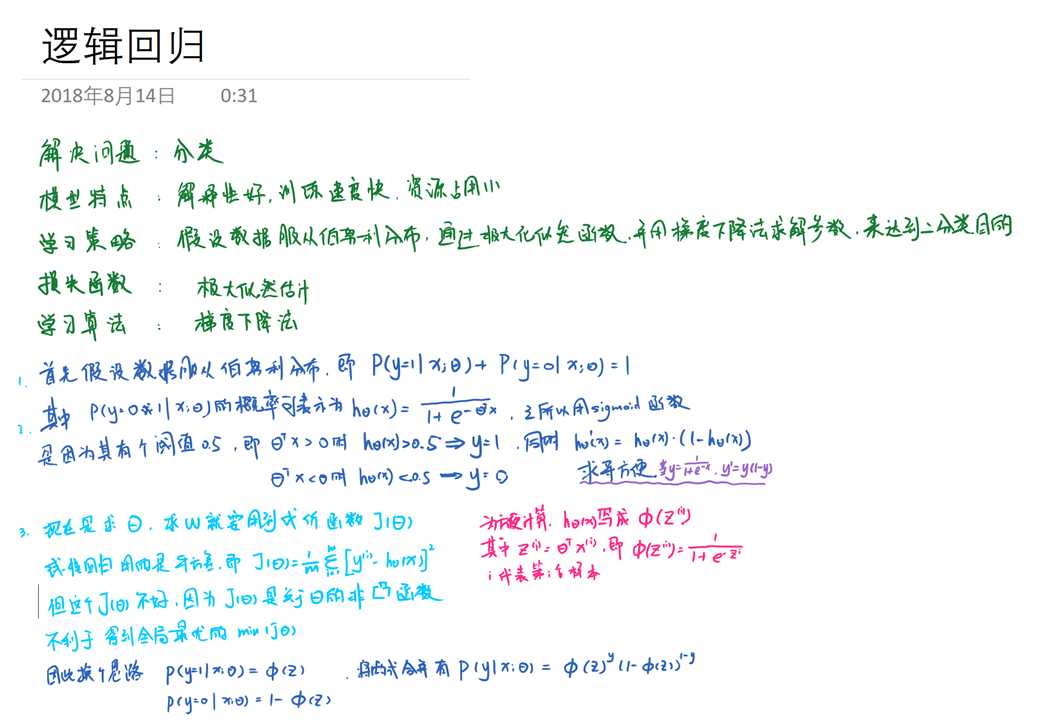 逻辑回归
2018年8月14日 0:31
解决问题 : 分类
模型特点 : 解释性好,训练速度快.资源占用小
学习策略 : 假设数据服从伯努利分布,通过极大化似然函数,并用梯度下降法求解参数,来达到二分类目的
损失函数 : 极大似然估计
学习算法 : 梯度下降法
1. 首先假设数据服从伯努利分布,即 P(y=1|x;θ)+ P(y=0|x;θ)=1
2. 其中 P(y=1|x;θ)的概率可表示为 hθ(x)= 1/(1+e^-θᵀx) ,之所以用sigmoid函数
是因为其有个阈值0.5,即 θᵀx>0时 hθ(x)>0.5⇒y=1 ,同时 hθ'(x)= hθ(x)·(1-hθ(x))
θᵀx<0时 hθ(x)<0.5→y=0 求导方便 当y=1/(1+e^-x), y'=y(1-y)
3. 现在是求θ,求W就要用到代价函数J(θ)
线性回归用的是平方差,即 J(θ)=1/m Σ[y⁽ⁱ⁾-hθ(x)]²
但这个J(θ)不好,因为J(θ)是关于θ的非凸函数
不利于得到全局最优的 min J(θ)
为方便计算, hθ(x)写成 Φ(Z⁽ⁱ⁾)
其中 Z⁽ⁱ⁾=θᵀx⁽ⁱ⁾,即 Φ(Z⁽ⁱ⁾)= 1/(1+e^-Zⁱ)
i代表第i个样本
因此换个思路 P(y=1|x;θ)=Φ(Z) ,将两式合并有 P(y|x;θ)= Φ(Z)^y (1-Φ(Z))^1-y
P(y=0|x;θ)=1-Φ(Z)